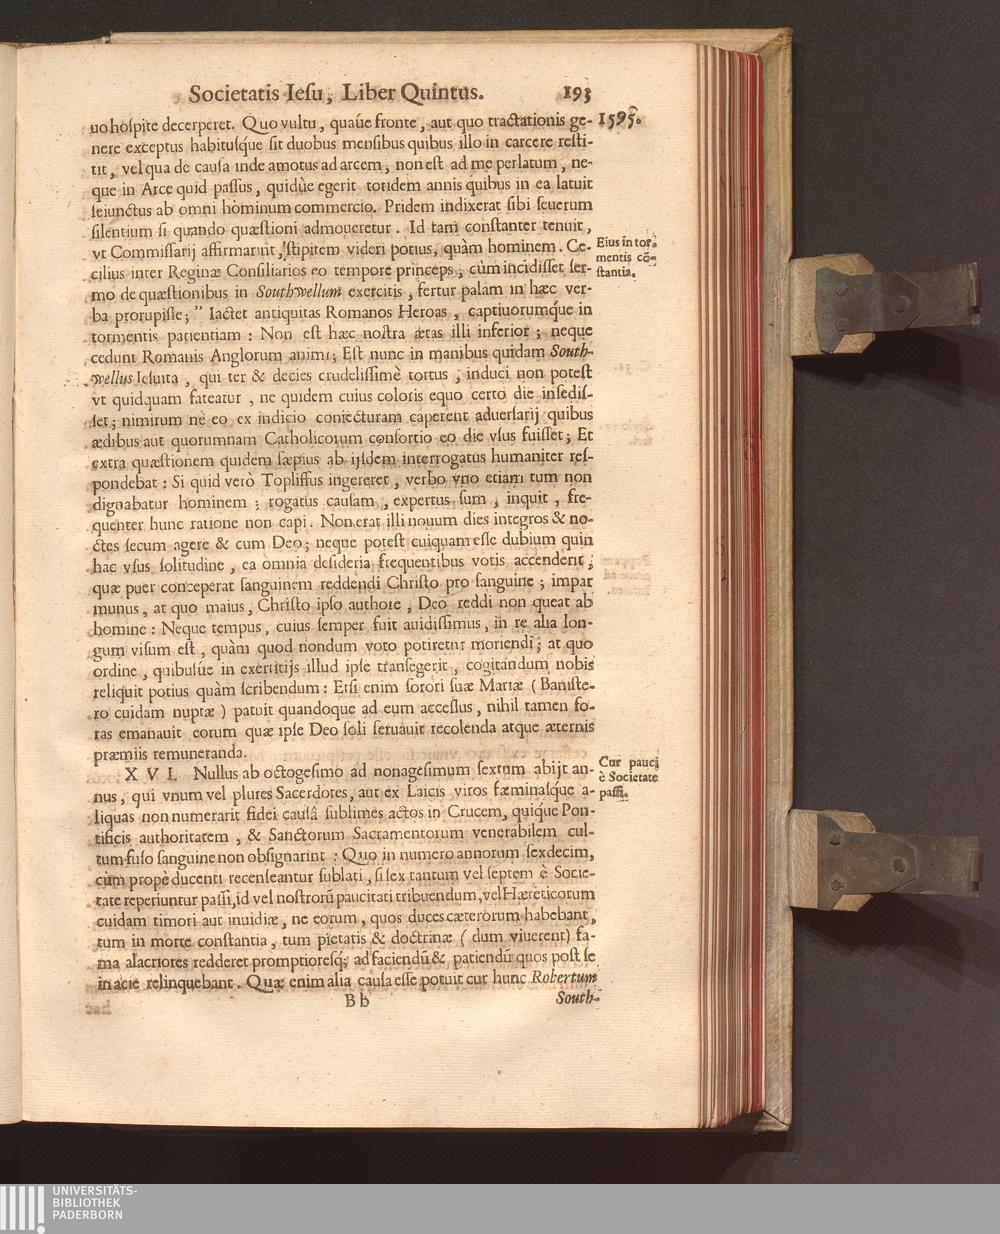 Societatis Iesu, Liber Quintus. 193
uo hospite decerperet. Quo vultu, quaúe fronte, aut quo tractationis ge- 1595.
nere exceptus habitusque sit duobus mensibus quibus illo in carcere resti-
tit, vel qua de causa inde amotus ad arcem, non est ad me perlatum, ne-
que in Arce quid passus, quidùe egerit totidem annis quibus in ea latuit
seiunctus ab omni hòminum commercio. Pridem indixerat sibi seuerum
silentium si quando quæstioni admoueretur. Id tam constanter tenuit,
vt Commissarij affirmarint, stipitem videri potius, quàm hominem. Ce-
Eius in tor-
mentis cō-
stantia.
cilius inter Reginæ Consiliarios eo tempore princeps, cùm incidisset ser-
mo de quæstionibus in Southwellum exercitis, fertur palam in hæc ver-
ba prorupisse; " Iactet antiquitas Romanos Heroas, captiuorumq́ue in
tormentis patientiam: Non est hæc nostra ætas illi inferior; neque
cedunt Romanis Anglorum animi; Est nunc in manibus quidam South-
wellus Iesuita, qui ter & decies crudelissimè tortus, induci non potest
vt quidquam fateatur, ne quidem cuius coloris equo certo die insedis-
set; nimirum nè eo ex indicio coniecturam caperent aduersarij quibus
ædibus aut quorumnam Catholicorum consortio eo die vsus fuisset; Et
extra quæstionem quidem sæpius ab ijsdem interrogatus humaniter res-
pondebat: Si quid verò Topliffus ingereret, verbo vno etiam tum non
dignabatur hominem; rogatus causam, expertus sum, inquit, fre-
quenter hunc ratione non capi. Non erat illi nouum dies integros & no-
ctes secum agere & cum Deo; neque potest cuiquam esse dubium quin
hac vsus solitudine, ea omnia desideria frequentibus votis accenderit,
quæ puer conceperat sanguinem reddendi Christo pro sanguine; impar
munus, at quo maius, Christo ipso authore, Deo reddi non queat ab
homine: Neque tempus, cuius semper fuit auidissimus, in re alia lon-
gum visum est, quàm quod nondum voto potiretur moriendi; at quo
ordine, quibusúe in exercitijs illud ipse transegerit, cogitandum nobis
reliquit potius quàm scribendum: Etsi enim sorori suæ Mariæ (Baniste-
ro cuidam nuptæ) patuit quandoque ad eum accessus, nihil tamen fo-
ras emanauit eorum quæ ipse Deo soli seruauit recolenda atque æternis
præmiis remuneranda.
XVI. Nullus ab octogesimo ad nonagesimum sextum abijt an-
Cur pauci
è Societate
passi.
nus, qui vnum vel plures Sacerdotes, aut ex Laicis viros fæminasque a-
liquas non numerarit fidei causâ sublimes actos in Crucem, quique Pon-
tificis authoritatem, & Sanctorum Sacramentorum venerabilem cul-
tum fuso sanguine non obsignarint: Quo in numero annorum sexdecim,
cùm propè ducenti recenseantur sublati, si sex tantum vel septem è Socie-
tate reperiuntur passi, id vel nostrorū paucitati tribuendum, vel Hæreticorum
cuidam timori aut inuidiæ, ne eorum, quos duces cæterorum habebant,
tum in morte constantia, tum pietatis & doctrinæ (dum viuerent) fa-
ma alacriores redderet promptioresq́; ad faciendū & patiendū quos post se
in acie relinquebant. Quæ enim alia causa esse potuit cur hunc Robertum
Bb South-
UNIVERSITÄTS-
BIBLIOTHEK
PADERBORN